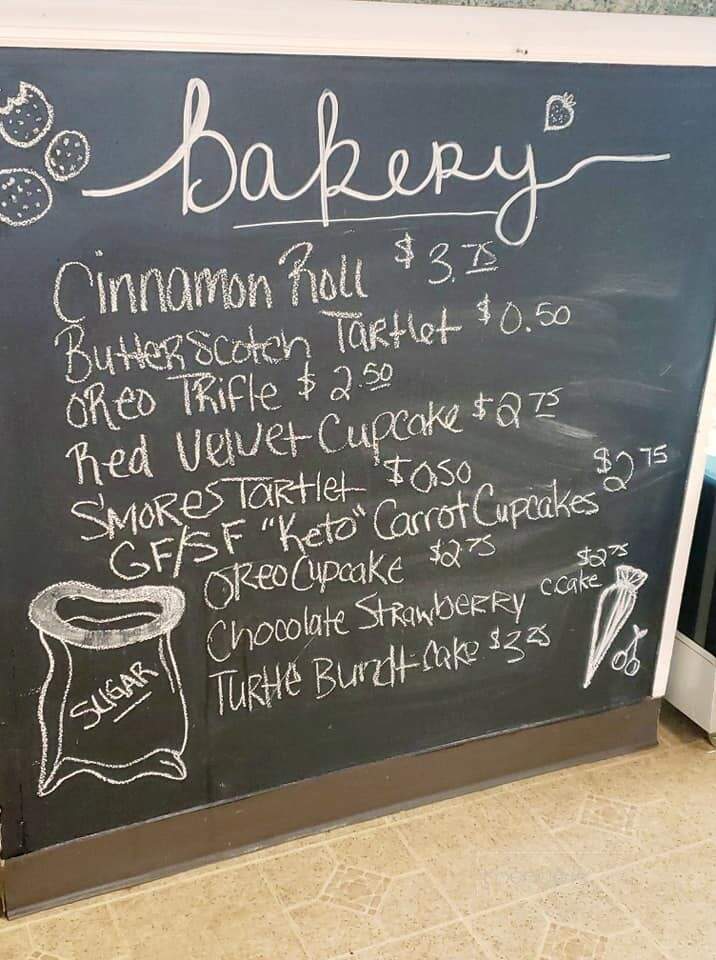 bakery
Cinnamon Roll $3.75
Butterscotch Tartlet $0.50
Oreo Trifle $2.50
Red Velvet Cupcake $2.75
Smores Tartlet $0.50
GF/SF "Keto" Carrot Cupcakes $2.75
Oreo Cupcake $2.75
Chocolate Strawberry c.cake $2.75
Turtle Bundt Cake $3.25
SUGAR